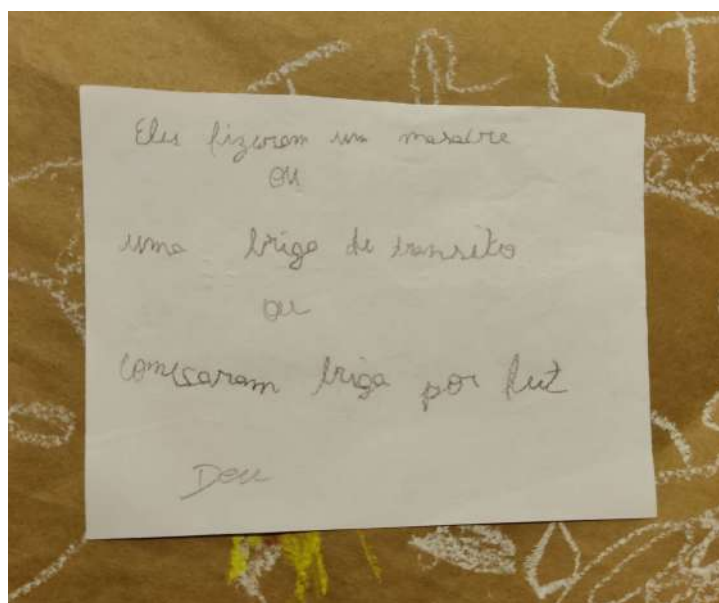 CRIST
Eles fizeram um masacre
ou
uma briga de transito
ou
começaram briga por fut
Deu